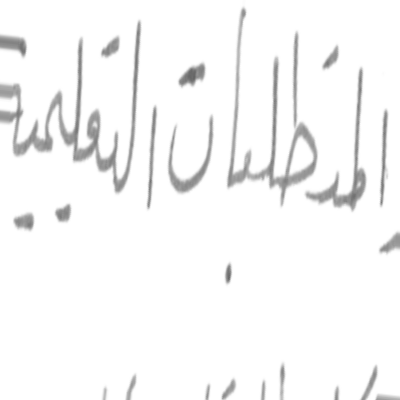 المتطلبات التعليمية